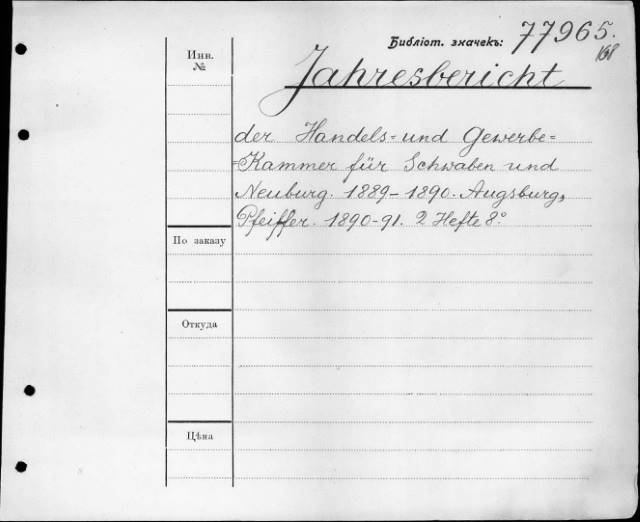 Библіот. значекъ: 77965.
168
Инв.
№
Jahresbericht
der Handels= und Gewerbe=
=Kammer für Schwaben und
Neuburg. 1889–1890. Augsburg,
Pfeiffer. 1890-91. 2 Hefte 8°.
По заказу
Откуда
Цѣна